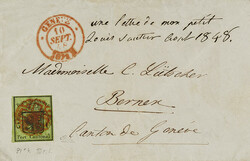 GENÈVE
10
SEPT.
une lettre de mon petit
Louis Août 1848.
Mademoiselle C.
Bernex
Canton de Genève